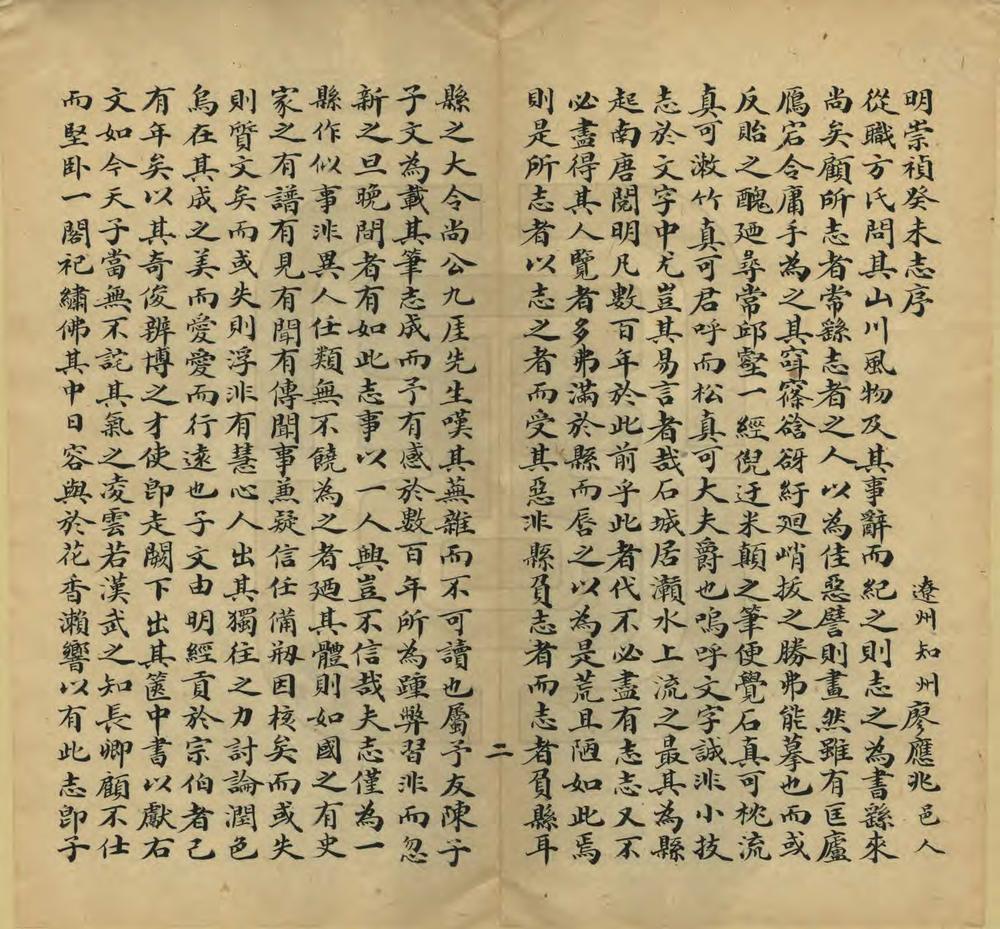 明崇禎癸未志序
遼州知州廖應兆邑人
從職方氏問其山川風物及其事辭而紀之則志之為書繇來
尚矣顧所志者常繇志者之人以為佳惡譬則畫然雖有匡廬
鴈宕令庸手為之其窅窱硲谺紆廻峭拔之勝弗能摹也而或
反貽之醜廼尋常邱壑一經倪迂米顛之筆便覺石真可枕流
真可漱竹真可君呼而松真可大夫爵也嗚呼文字誠非小技
志於文字中尤豈其易言者哉石城居灨水上流之最其為縣
起南唐閱明凡數百年於此前乎此者代不必盡有志志又不
必盡得其人覽者多弗滿於縣而唇之以為是荒且陋如此焉
則是所志者以志之者而受其惡非縣負志者而志者負縣耳
二
縣之大令尚公九厓先生嘆其蕪雜而不可讀也屬予友陳子
子文為載其筆志成而予有感於數百年所為踵弊習非而忽
新之旦晚間者有如此志事以一人興豈不信哉夫志僅為一
縣作似事非異人任類無不饒為之者廼其體則如國之有史
家之有譜有見有聞有傳聞事兼疑信任備刱因核矣而或失
則質文矣而或失則浮非有慧心人出其獨往之力討論潤色
烏在其成之美而愛愛而行遠也子文由明經貢於宗伯者已
有年矣以其奇俊辨博之才使即走闕下出其篋中書以獻右
文如今天子當無不詫其氣之凌雲若漢武之知長卿顧不仕
而堅卧一閣祀繡佛其中日容與於花香瀨響以有此志即子